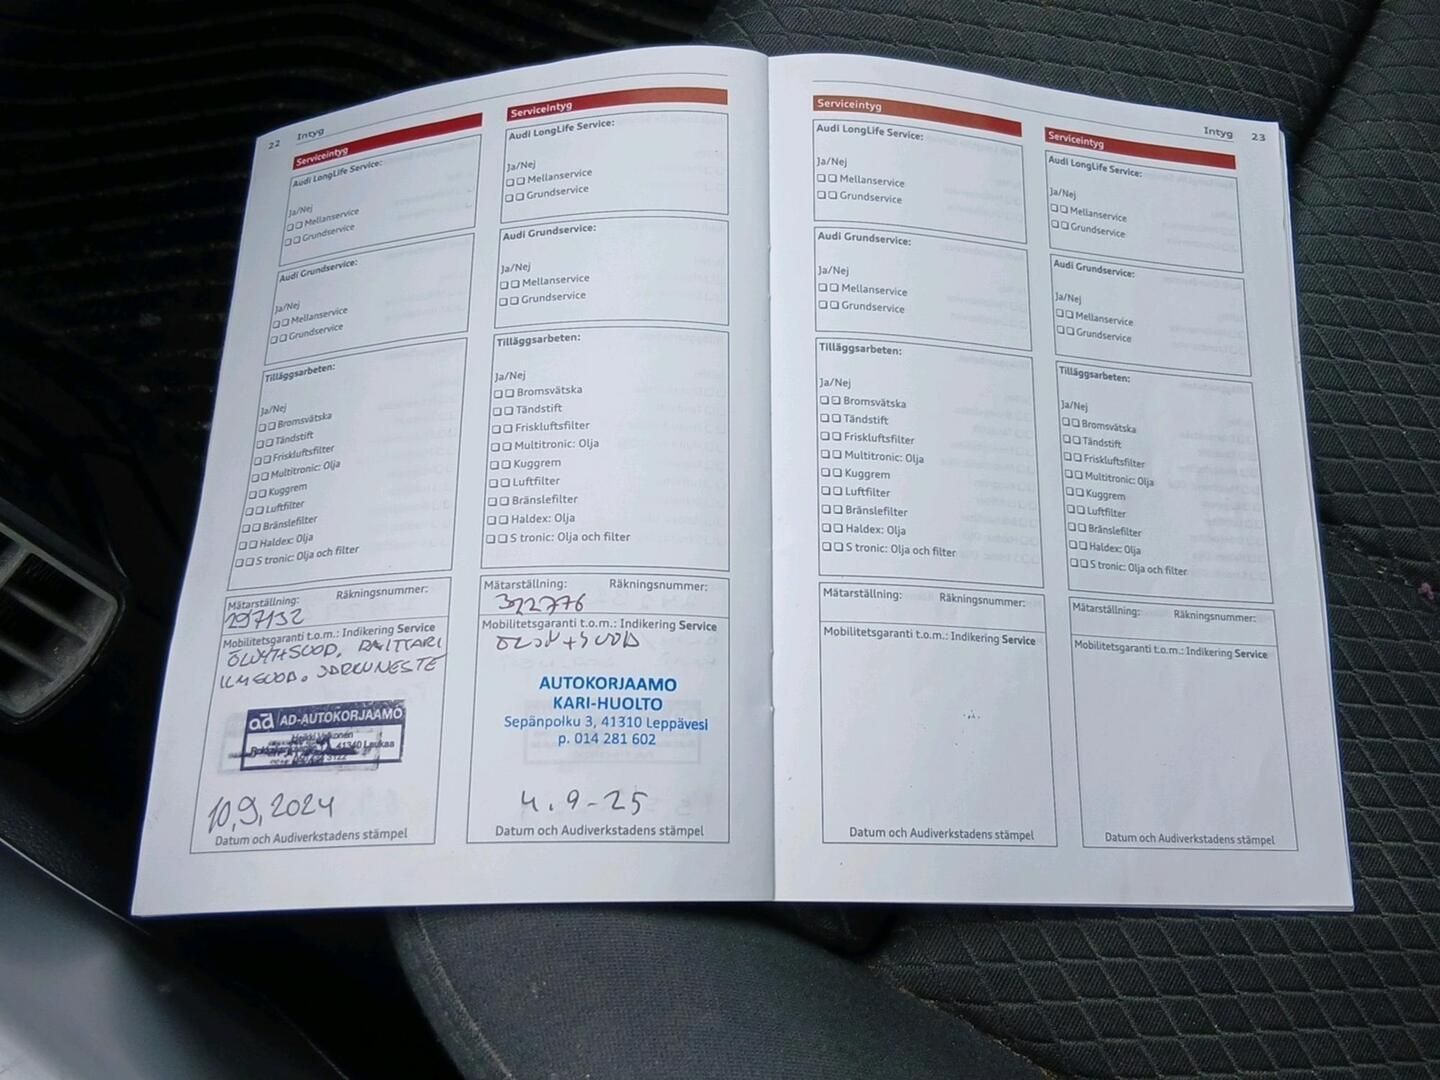 22 Intyg
Serviceintyg
Audi LongLife Service:
Ja/Nej
Mellanservice
Grundservice
Audi Grundservice:
Ja/Nej
Mellanservice
Grundservice
Tilläggsarbeten:
Ja/Nej
Bromsvätska
Tändstift
Friskluftsfilter
Multitronic: Olja
Kuggrem
Luftfilter
Bränslefilter
Haldex: Olja
S tronic: Olja och filter
Mätarställning: Räkningsnummer:
297132
Mobilitetsgaranti t.o.m.: Indikering Service
ad AD-AUTOKORJAAMO
41340 Laukaa
10.9.2024
Datum och Audiverkstadens stämpel
Serviceintyg
Audi LongLife Service:
Ja/Nej
Mellanservice
Grundservice
Audi Grundservice:
Ja/Nej
Mellanservice
Grundservice
Tilläggsarbeten:
Ja/Nej
Bromsvätska
Tändstift
Friskluftsfilter
Multitronic: Olja
Kuggrem
Luftfilter
Bränslefilter
Haldex: Olja
S tronic: Olja och filter
Mätarställning: Räkningsnummer:
322776
Mobilitetsgaranti t.o.m.: Indikering Service
AUTOKORJAAMO
KARI-HUOLTO
Sepänpolku 3, 41310 Leppävesi
p. 014 281 602
4.9-25
Datum och Audiverkstadens stämpel
Serviceintyg
Audi LongLife Service:
Ja/Nej
Mellanservice
Grundservice
Audi Grundservice:
Ja/Nej
Mellanservice
Grundservice
Tilläggsarbeten:
Ja/Nej
Bromsvätska
Tändstift
Friskluftsfilter
Multitronic: Olja
Kuggrem
Luftfilter
Bränslefilter
Haldex: Olja
S tronic: Olja och filter
Mätarställning: Räkningsnummer:
Mobilitetsgaranti t.o.m.: Indikering Service
Datum och Audiverkstadens stämpel
Intyg 23
Serviceintyg
Audi LongLife Service:
Ja/Nej
Mellanservice
Grundservice
Audi Grundservice:
Ja/Nej
Mellanservice
Grundservice
Tilläggsarbeten:
Ja/Nej
Bromsvätska
Tändstift
Friskluftsfilter
Multitronic: Olja
Kuggrem
Luftfilter
Bränslefilter
Haldex: Olja
S tronic: Olja och filter
Mätarställning: Räkningsnummer:
Mobilitetsgaranti t.o.m.: Indikering Service
Datum och Audiverkstadens stämpel